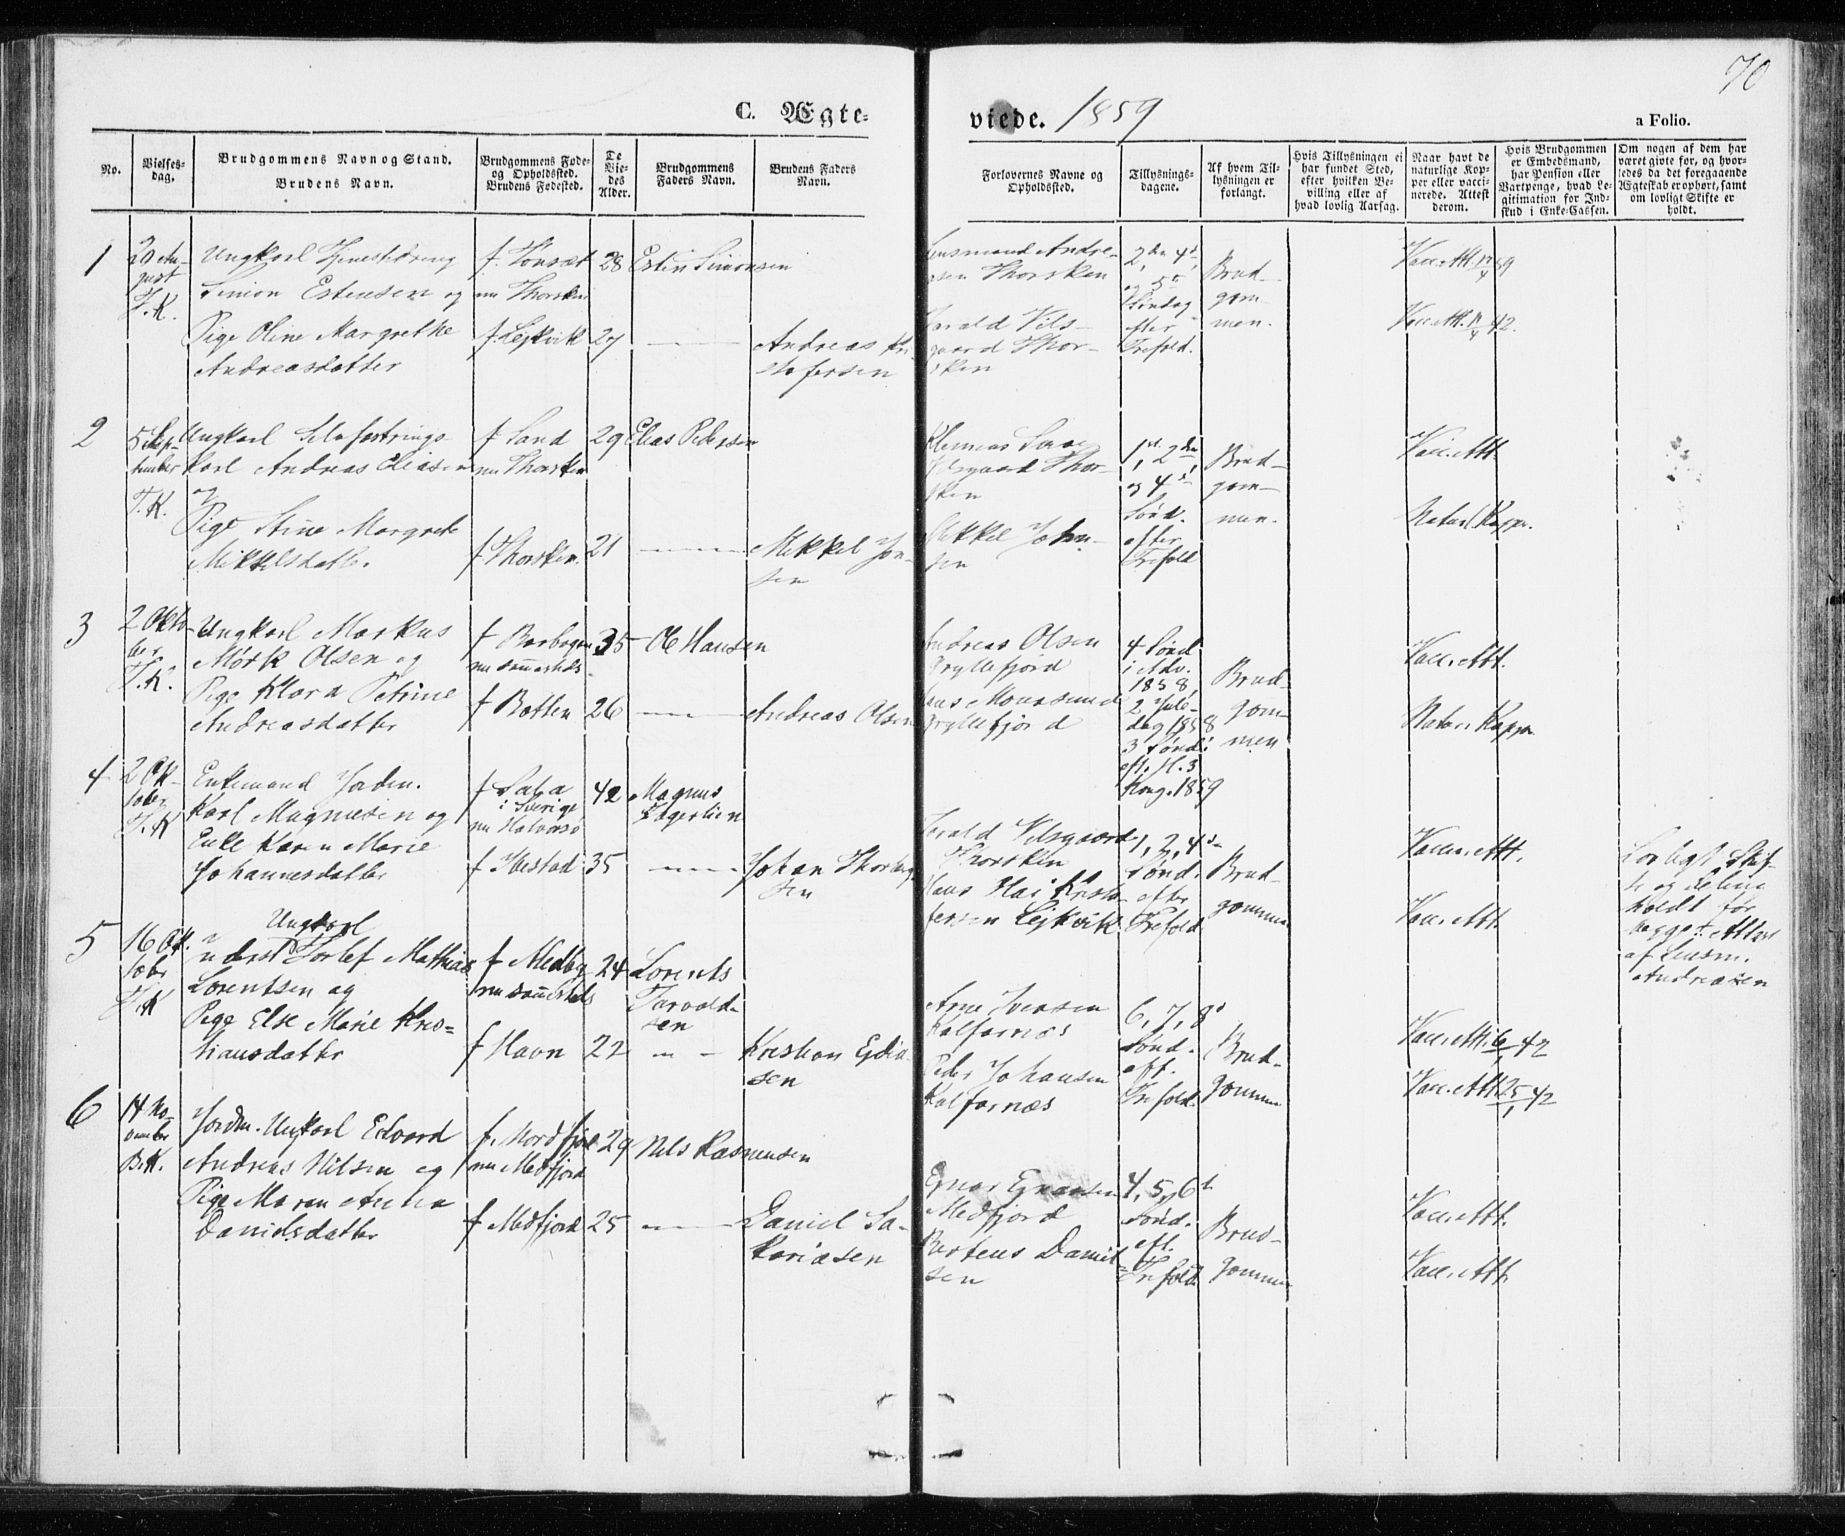 70
C. Ægte-
viede. 1859
a Folio.
No.
Vielses-
dag.
Brudgommens Navn og Stand.
Brudens Navn.
Brudgommens Føde-
og Opholdssted.
Brudens Fødested.
De
Vie-
des
Alder.
Brudgommens
Faders Navn.
Brudens Faders
Navn.
Forlovernes Navne og
Opholdssted.
Tillysnings-
dagene.
Af hvem Til-
lysningen er
forlangt.
Hvis Tillysningen ei
har fundet Sted,
efter hvilken Be-
villing eller af
hvad lovlig Aarsag.
Naar havt de
naturlige Kop-
per eller vacci-
nerede. Attest
derom.
Hvis Brudgommen
er Embedsmand,
har Pension eller
Vartpenge, hvad Le-
gitimation for Ind-
skud i Enke-Cassen.
Om nogen af dem har
været givte før, og hvor-
ledes da det foregaaende
Ægteskab er ophørt, samt
om lovligt Skifte er
holdt.
1
20 Au-
gust
T.K.
Ungkarl
Simon Estensen og
Pige Oline Margrethe
Andreasdatter
f. Tønset
nu Thorsken
f. Lejkvik
28
27
Esten Simonsen
Andreas Kri-
stofersen
Lensmand Andre-
asen Thorsken
Harald Vils-
gaard Thor-
sken
2den, 4d,
og 5d
Søndag
efter
Trefold.
Brud-
gom-
men.
Vacc. Att. 59
Vacc. Att. 42.
2
5 Sep-
tember
T.K.
Ungkarl
karl Andreas Eliasen
og
Pige Stine Margrete
Mikkelsdatter
f Sand
nu Thorsken
f Thorsken
29
21
Elias Pedersen
Mikkel Jon-
sen
Vilsgaard Thor-
sken
Mikkel John-
sen
1st, 2den,
og 4d
Sønd.
efter
Trefold
Brud-
gom-
men.
Vacc. Att.
Naturl. Kopper.
3
2 Okto-
ber
T.K.
Ungkarl Markus
Mörk Olsen og
Pige Klara Petrine
Andreasdatter
f
nu sammesteds
f Botten
35
26
Ole Hansen
Andreas Olsen
Andreas Olsen
Gryllefjord
Gryllefjord
4 Sønd
i Adv.
1858,
2 Jule-
dag 1858
3 Sønd.
eft. H. 3
Kong. 1859
Brud-
gom-
men
Vacc. Att.
Natur. Kopper
4
2 Ok-
tober
T.K
Enkemand Jordm.
Karl Magnusen og
Enke Karen Marie
Johannesdatter
f Sala
i Sverige
nu
f Ibestad
42
35
Magnus
Johan Thorberg-
sen
Harald Vilsgaard
Thorsken
Hans Kristo-
fersen Lejkvik
1, 2, 4d
Sønd.
efter
Trefold.
Brud-
gommen
Vacc. Att.
Vacc. Att.
Lovligt Skif-
te og Deling
holdt for
begge. Attest
af Lensm.
Andreasen
5
16 Ok-
tober
T.K
Ungkarl
Torlef Mathias
Lorentsen og
Pige Else Marie Kris-
tiansdatter
f Medby
nu sammesteds
f Havn
24
22
Lorents
Tarald-
sen
Kristian Edia-
sen
Arne Iversen
Kalfarnes
Peder Johansen
Kalfarnes
6, 7, 8d
Sønd.
eft.
Trefold.
Brud-
gommen
Vacc. Att. 6 42
Vacc. Att. 25/1 42
6
14 No-
vember
B.K.
Jordm. Ungkarl Edvard
Andreas Nilsen og
Pige Maren Anna
Danielsdatter
f. Mordfjord
nu Medfjord
f Medfjord
29
25
Nils Rasmussen
Daniel Sa-
kariasen
Ejnar Ejnarsen
Medfjord
Daniel-
sen
4, 5, 6d
Sønd.
eft.
Trefold.
Brud-
gommen
Vacc. Att.
Vacc. Att.